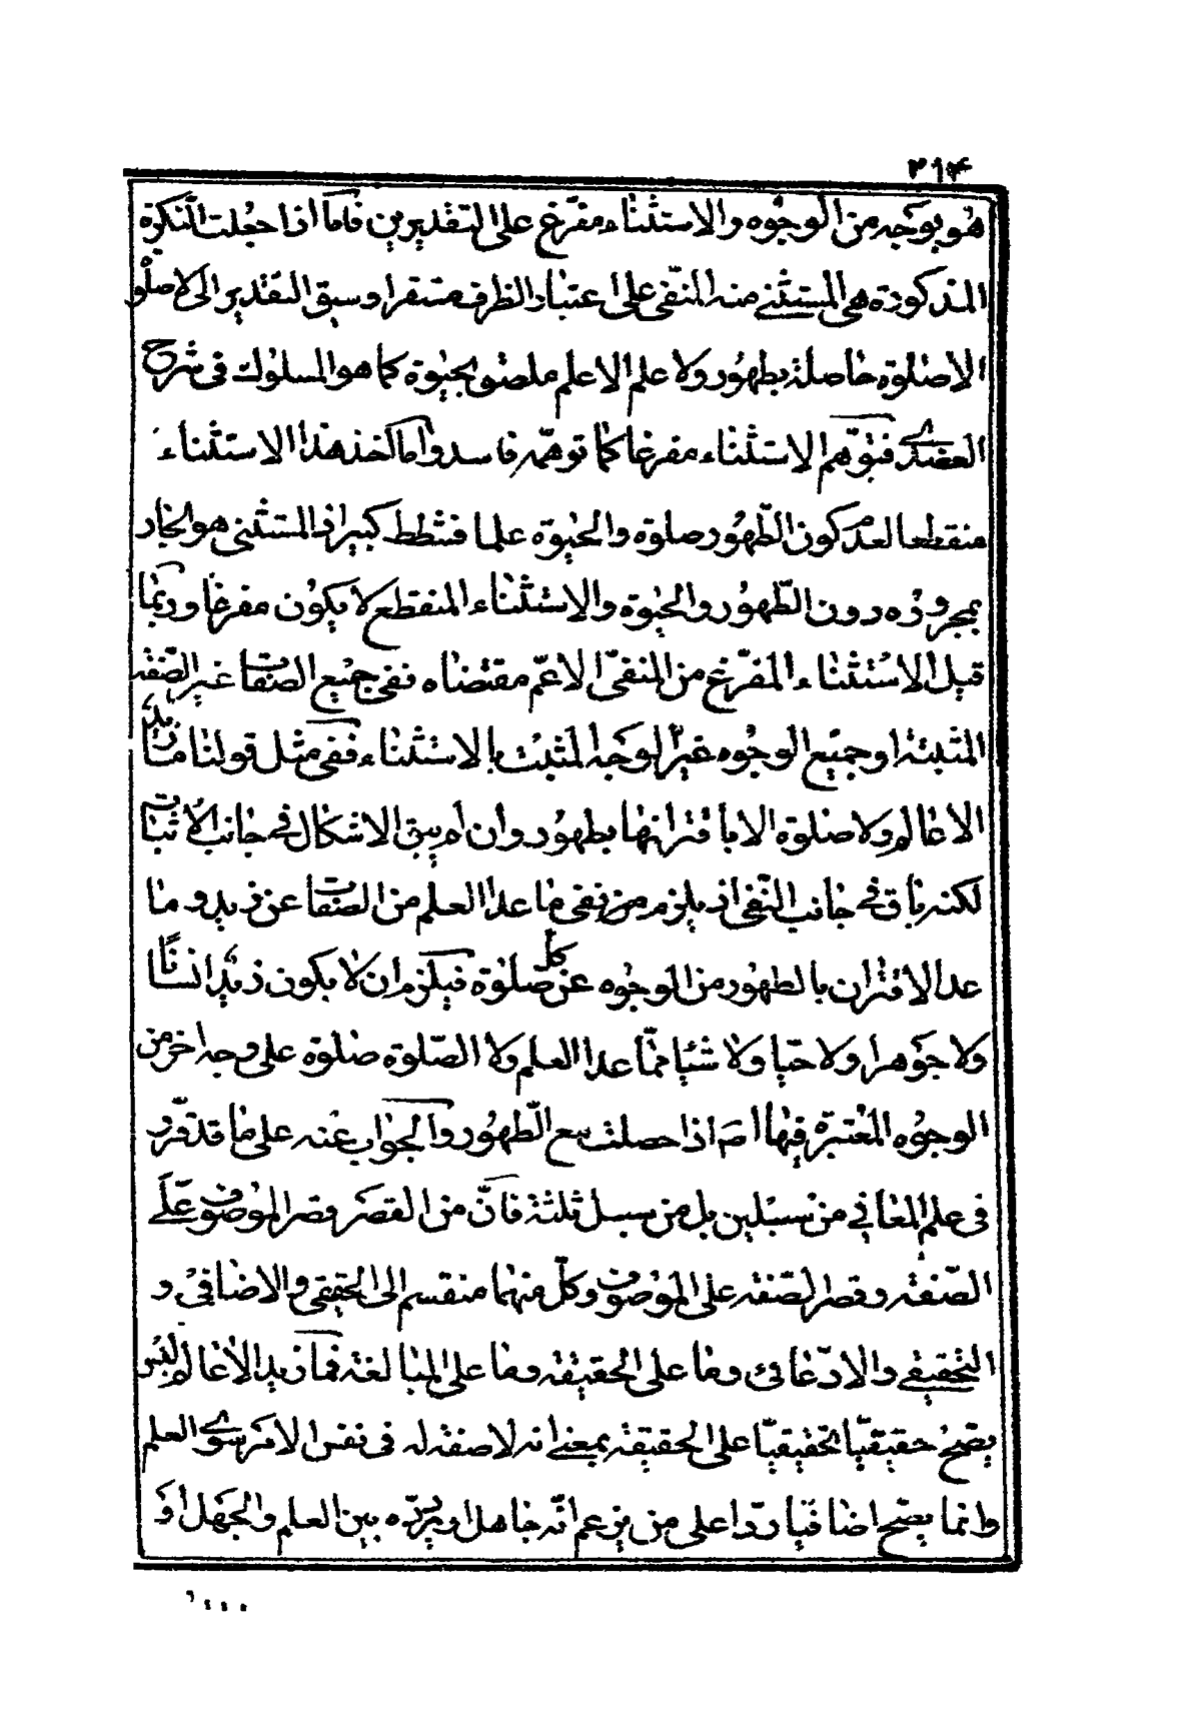 ٣١۴
هو بوجه من الوجوه والاستثناء مفرّغ على التقديرين فاما اذا جعلت النكرة
المذكورة هى المستثنى منه المنفى على اعتبار الظرف مستقرا وسيق التقدير الى لا صلوة
الا صلوة حاصلة بطهور ولا علم الا علم ملصق بحيوة كما هو المسلوك فى شرح
العضدى فتوهّم الاستثناء مفرغا كما توهمه فاسد واما اخذ هذا الاستثناء
منقطعا لعدم كون الطّهور صلوة والحيوة علما فشطط كبير اذ المستثنى هو الجار
بمجروره دون الطّهور والحيوة والاستثناء المنقطع لا يكون مفرغا وربما
قيل الاستثناء المفرّغ من المنفىّ الاعمّ مقتضاه نفى جميع الصفات غير الصّفة
المثبتة او جميع الوجوه غير الوجه المثبت بالاستثناء ففى مثل قولنا ما زيد
الا عالم ولا صلوة الا باقترانها بطهور وان لم يبق الاشكال فى جانب الاثبات
لكنه باق فى جانب النّفى اذ يلزم من نفى ما عدا العلم من الصفات عن زيد وما
عدا الاقتران بالطهور من الوجوه عن كل صلوة فيلزم ان لا يكون زيد انسانا
ولا جوهرا ولا حيا ولا شيئا ممّا عدا العلم ولا الصّلوة صلوة على وجه اخر من
الوجوه المعتبرة فيها اصَ اذا حصلت مع الطّهور والجواب عنه على ما قد قرّر
فى علم المعانى من سبيلين بل من سبل ثلثة فانّ من القصر قصر الموصوف على
الصّفة وقصر الصّفة على الموصوف وكلّ منهما منقسم الى الحقيقى والاضافى و
التحقيقى والادّعائى وما على الحقيقة وما على المبالغة فما زيد الا عالم ليس
يصحّ حقيقيّا تحقيقيّا على الحقيقة بمعنى انه لا صفة له فى نفس الامر سوى العلم
وانما يصحّ اضافيا ردّا على من يزعم انّه جاهل او يردّه بين العلم والجهل او